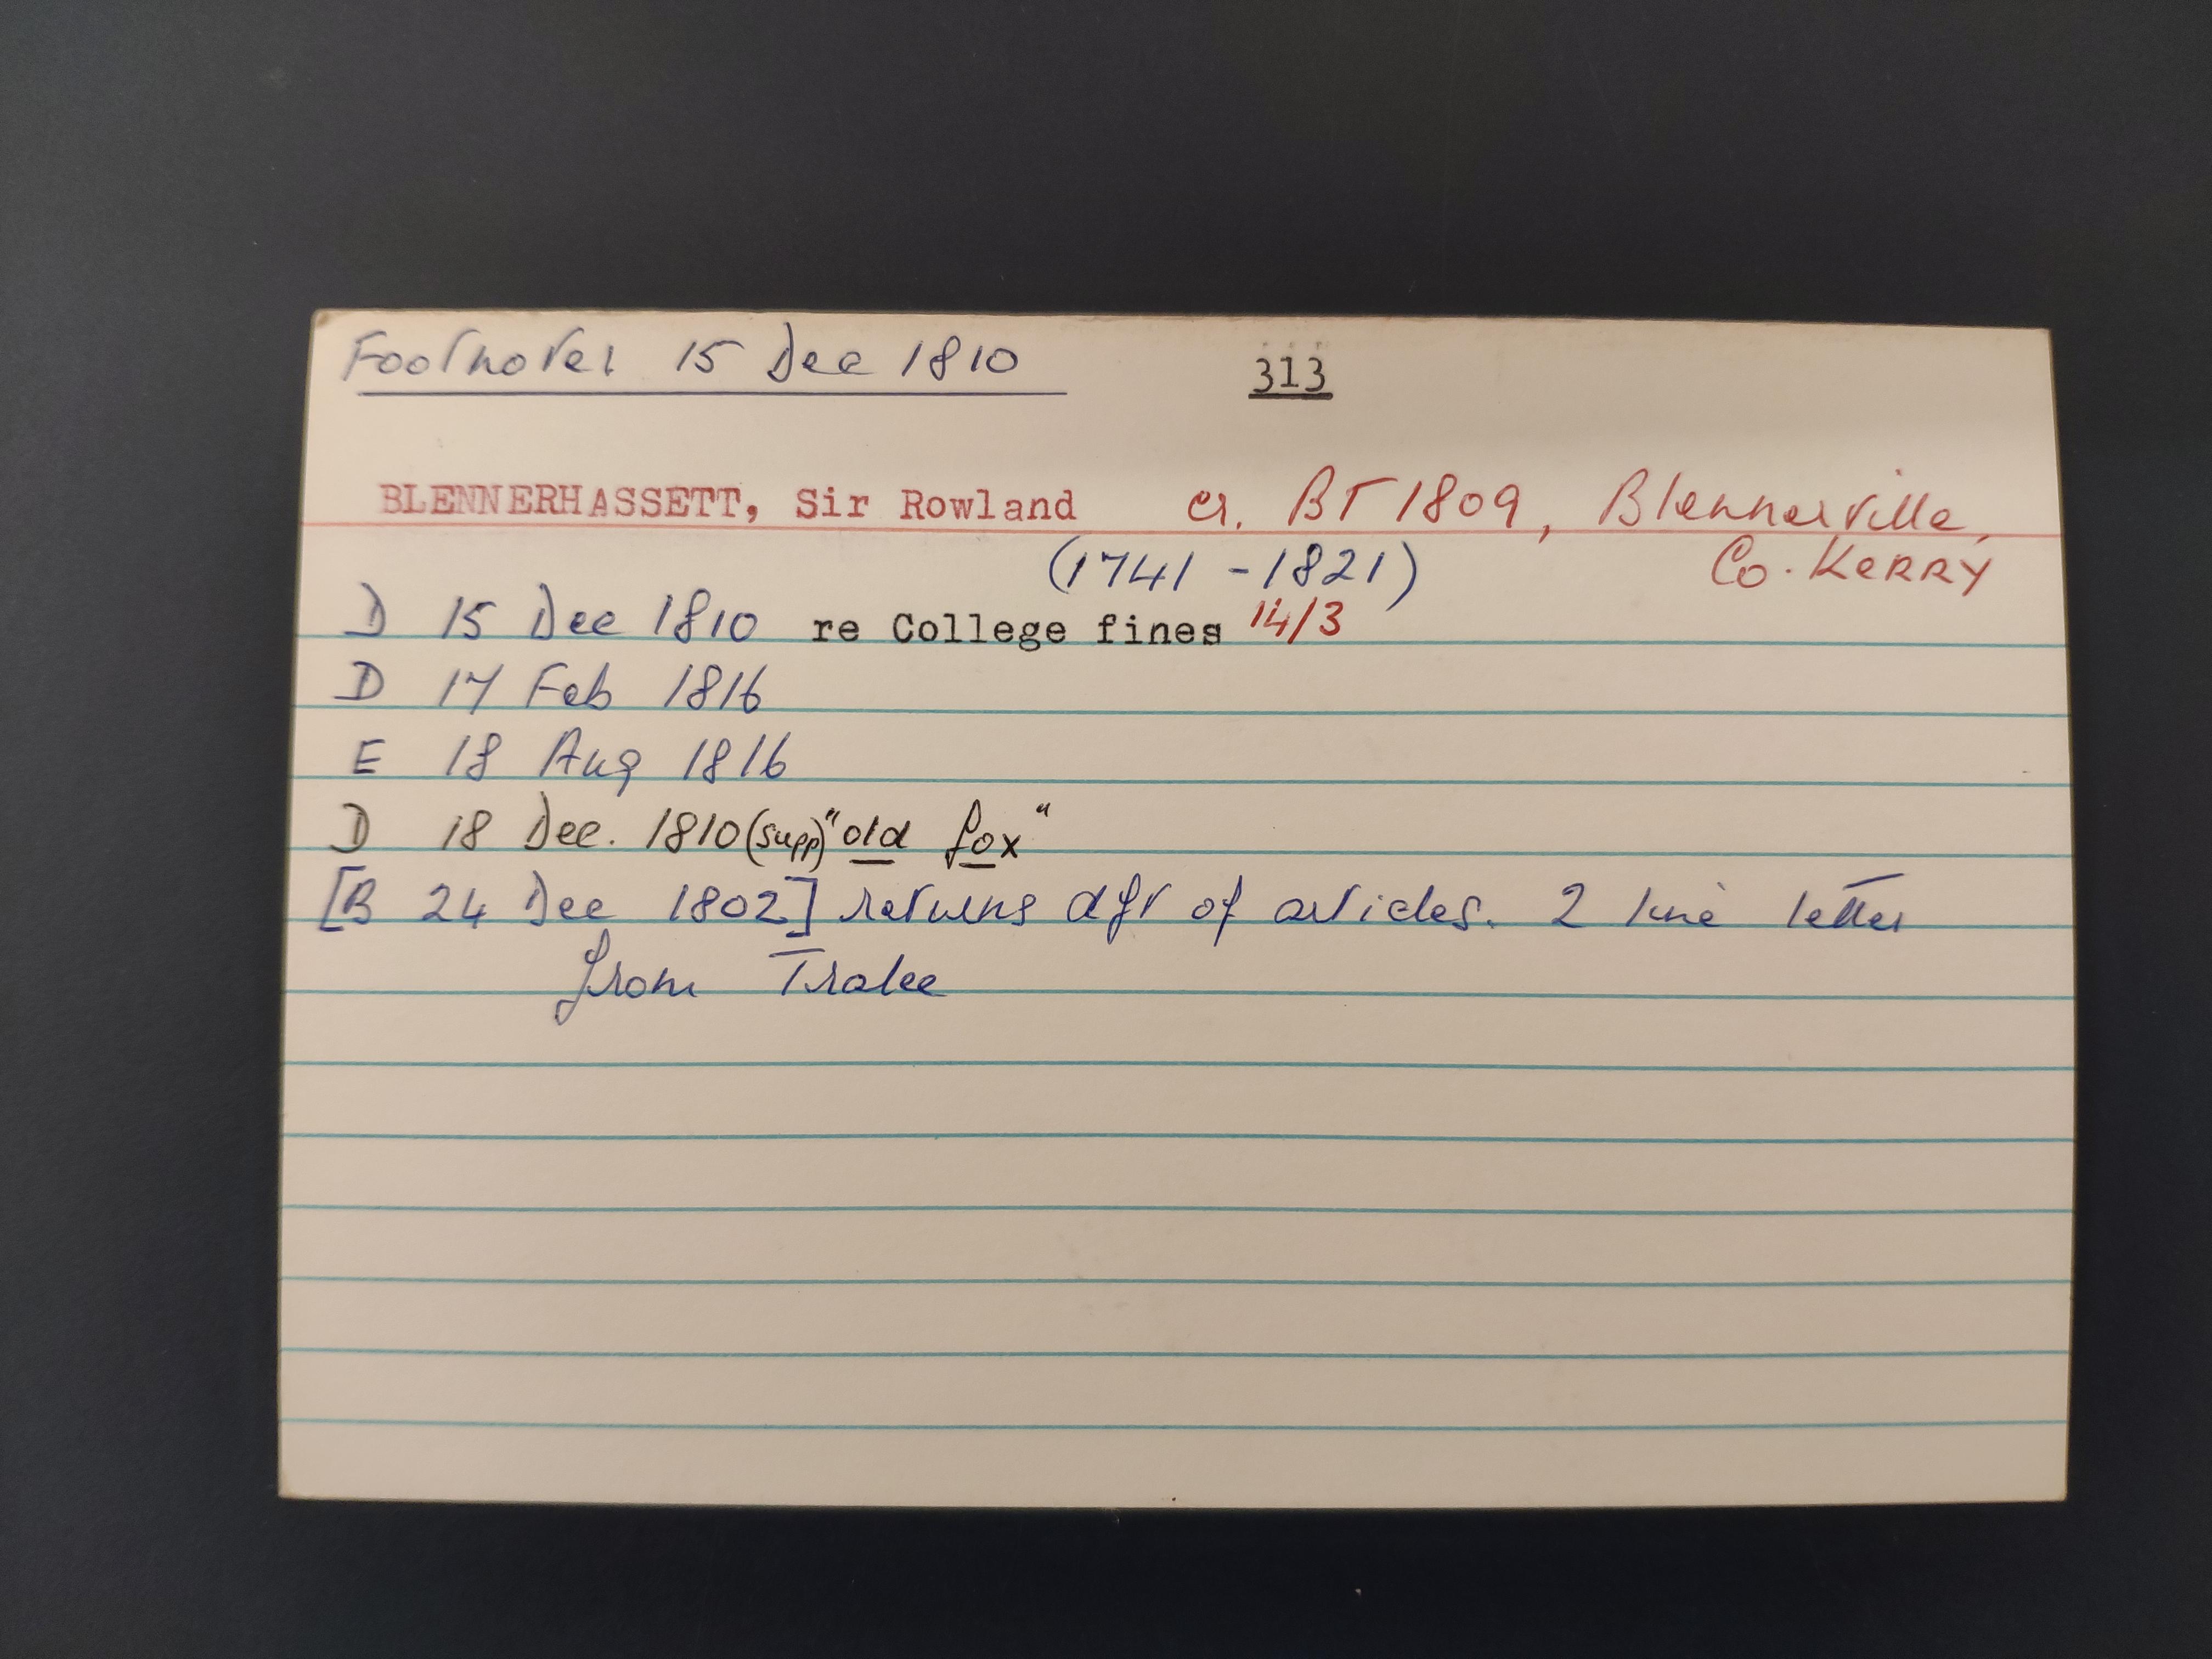 Footnotes 15 Dec 1810 313
BLENNERHASSETT, Sir Rowland cr. BT 1809, Blennerville,
(1741 - 1821) Co. KERRY
D 15 Dec 1810 re College fines 14/3
D 17 Feb 1816
E 18 Aug 1816
D 18 Dec. 1810 (supp) "old fox"
[B 24 Dec 1802] returns dft of articles. 2 line letter
from Tralee